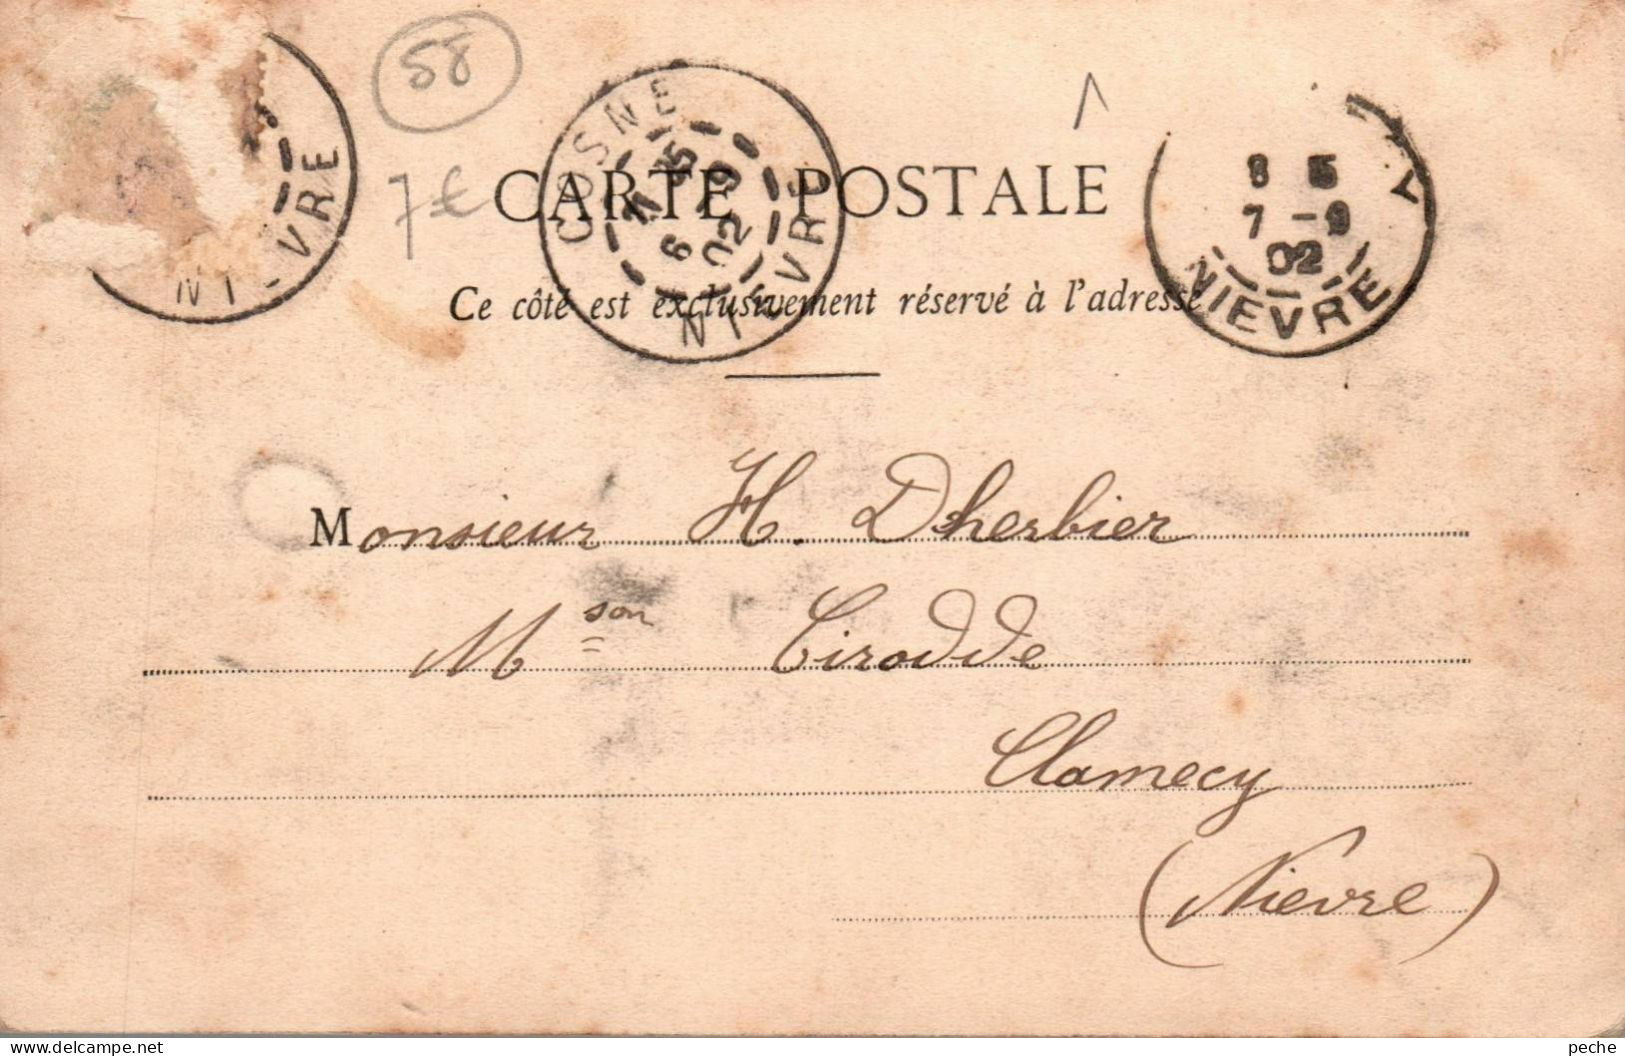 58
7 €
NIÈVRE
COSNE
11 15
6 9
02
NIÈVRE
Y
8 5
7 -9
02
NIEVRE
CARTE POSTALE
Ce côté est exclusivement réservé à l'adresse
Monsieur H. Dherbier
Mson Cirodde
Clamecy
(Nièvre)
peche